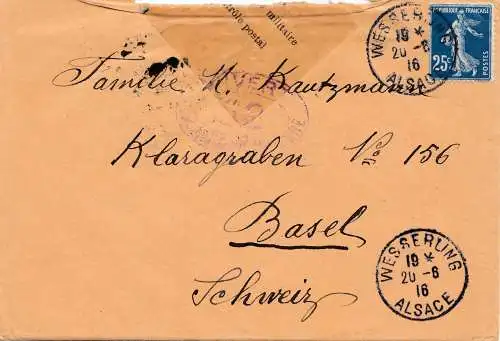 militaire
postal
RÉPUBLIQUE FRANÇAISE
25c
WESSERLING
19 *
20 -6
16
ALSACE
Familie M. Kautzmann
Klaragraben No 156
Basel
Schweiz
WESSERLING
19 *
20 -6
16
ALSACE